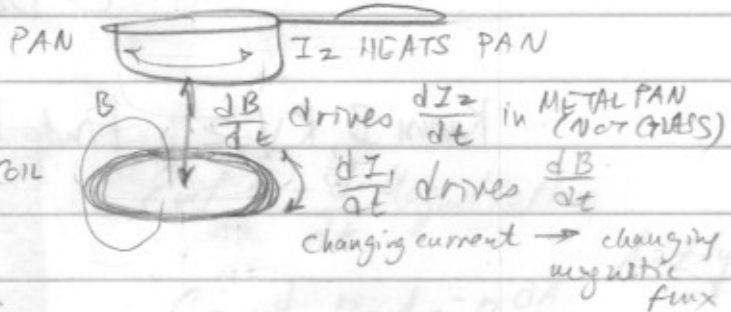 PAN I2 HEATS PAN
B dB/dt drives dI2/dt in METAL PAN
(NOT GLASS)
COIL dI1/dt drives dB/dt
changing current → changing
magnetic
flux